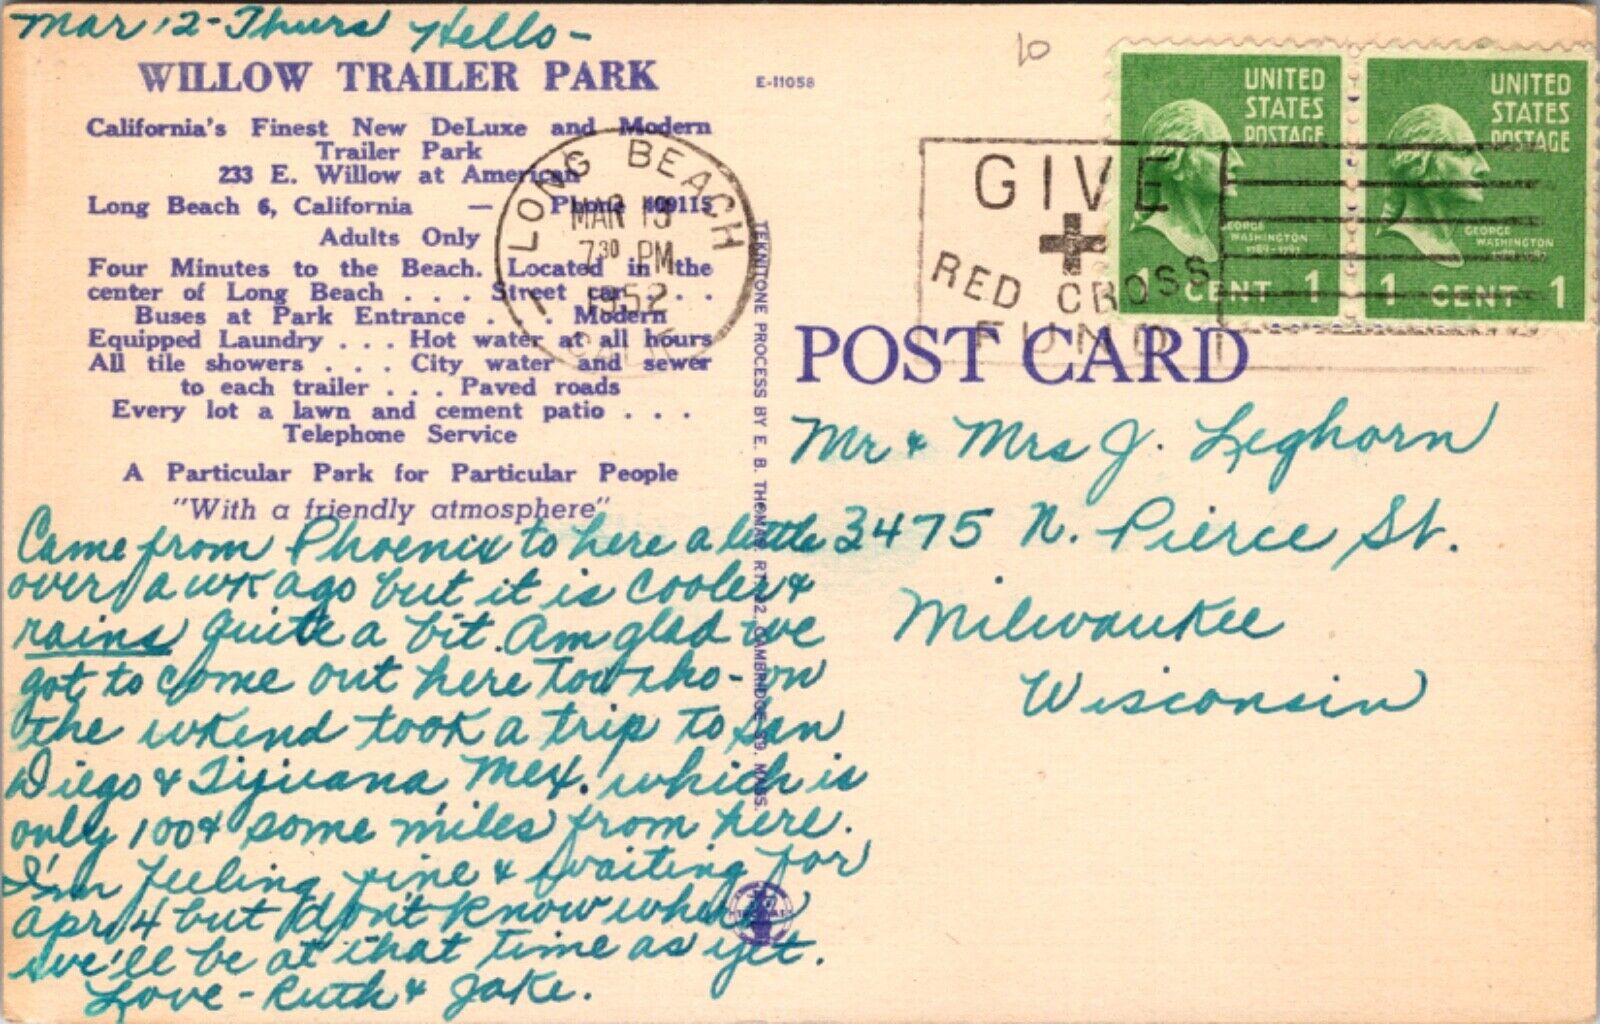 Mar 12 - Thurs Hello -
WILLOW TRAILER PARK
California's Finest New DeLuxe and Modern
Trailer Park
233 E. Willow at American
Long Beach 6, California — Phone 409115
Adults Only
Four Minutes to the Beach. Located in the
center of Long Beach . . . Street car . . .
Buses at Park Entrance . . . Modern
Equipped Laundry . . . Hot water at all hours
All tile showers . . . City water and sewer
to each trailer . . . Paved roads
Every lot a lawn and cement patio . . .
Telephone Service
A Particular Park for Particular People
"With a friendly atmosphere"
Came from Phoenix to here a little
over a wk ago but it is cooler &
rains quite a bit. Am glad we
got to come out here too tho - on
the wkend took a trip to San
Diego & Tijuana Mex. which is
only 100 & some miles from here.
I'm feeling fine & waiting for
Apr 4 but don't know where
we'll be at that time as yet.
Love - Ruth & Jake.
E-11058
TEKNITONE PROCESS BY E. B. THOMAS, RT. 2, CAMBRIDGE 39, MASS.
LONG BEACH
MAR 13
7 30 PM
1952
CALIF.
10
GIVE
RED CROSS
FUND
UNITED
STATES
POSTAGE
GEORGE
WASHINGTON
1789-1797
1 CENT 1
UNITED
STATES
POSTAGE
GEORGE
WASHINGTON
1 CENT 1
POST CARD
Mr & Mrs J. Leghorn
3475 N. Pierce St.
Milwaukee
Wisconsin